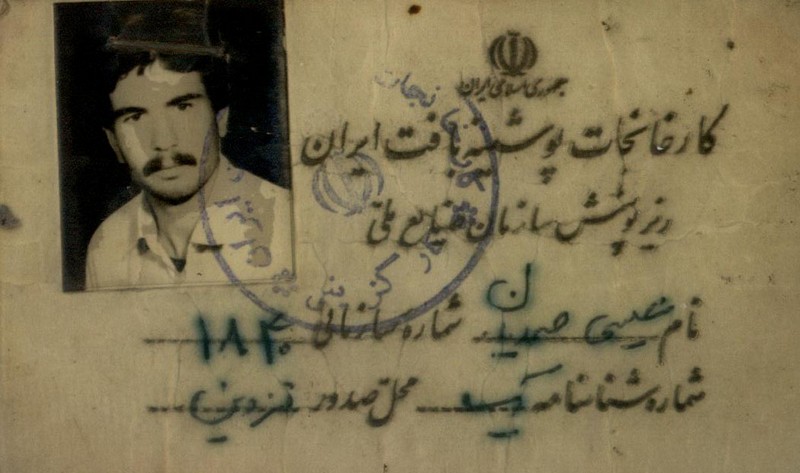 جمهوری اسلامی ایران
کارخانجات پوشینه بافت ایران
زیر پوشش سازمان صنایع ملی
نام عیسی صمدیان شماره سازمانی ۱۸۴۰
شماره شناسنامه محل صدور قزوین